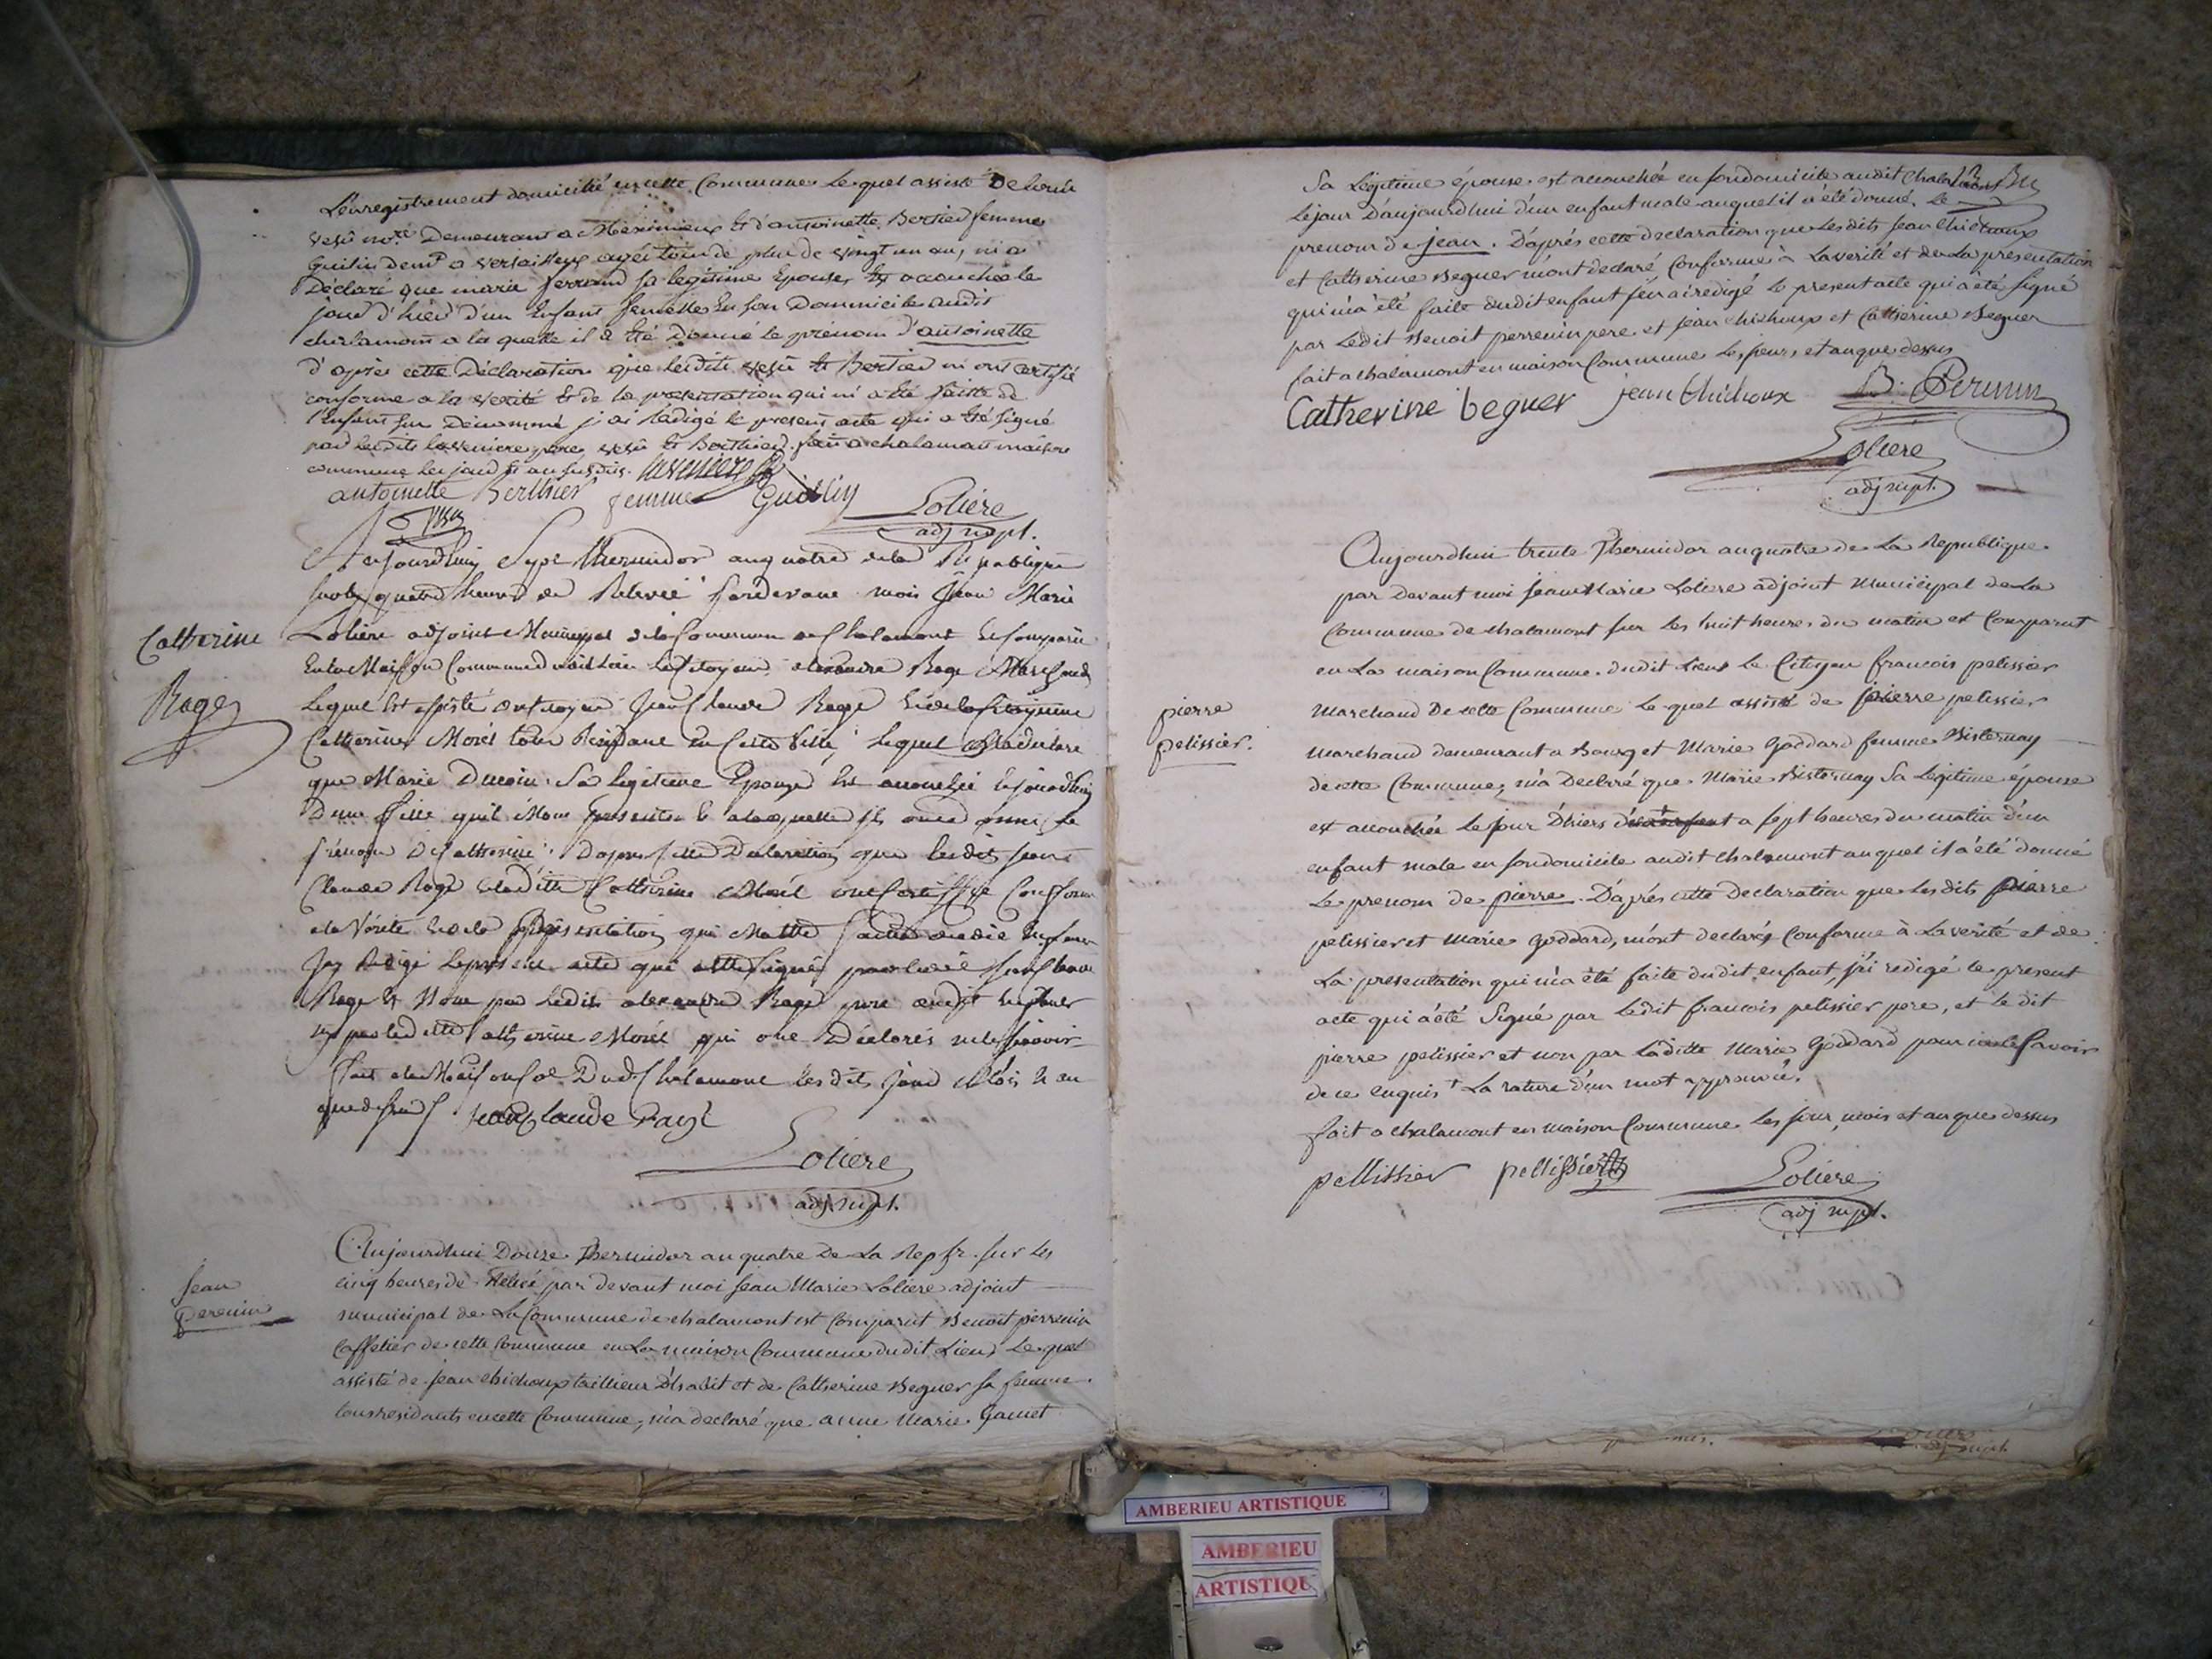 L'enregistrement domicilié en cette Commune Lequel assisté De Louis
vesû no.re Demeurant a Meximieux & d'antoinette Bertied femme
Guilin dem.t a versailleux agés tous de plus de vingt un ans, m'a
Déclaré que marie ferrand sa legitime Epouse, Est accouchée le
jour d'hier d'un Enfant femelle En son Domicile audit
chalamont a la quelle il a Eté Donné le prénom d'antoinette
d'après cette Déclaration que lesdits vesû & Bertied m'ont certifié
conforme a la verité & de la presentation qui m'a Eté faitte de
l'enfant sus Dénommé j'ai Rédigé le present acte qui a Eté signé
par lesdits laveniere pere, vesû & Berthied. fait a chalamont maison
commune les jour & an susdits. laveniere
antoinette Berthier femme Guillin
Vesu
Loliere
adj mpl.
Aujourdhuy Sept thermidor an quatre de la Republique
sur les quatre heures de Relevée pardevant moi Jean Marie
Catherine
Loliere adjoint Municipal de la Commune de Chalamont Est Comparu
En la Maison Commune dudit lieu le Citoyen alexandre Roge Marchand
Roge
Lequel Est assisté du Citoyen Jean Claude Roge & de la Citoyenne
Catherine Morel tous Residant En Cette Ville, lequel a declaré
que Marie Sa legitime Epouse Est accouchée aujourdhuy
D'une fille quil Nous presente & a laquelle ils ont donné le
prénom De Catherine. Dapres cette Declaration que lesdits Jean
Claude Roge & ladite Catherine Morel ont Certiffié Conforme
a la Vérité & de la Présentation qui M'a été faitte dudit Enfant
Jay Redigé le present acte qui a été signé par ledit Jean Claude
Roge & Non par ledit alexandre Rogé pere dudit Enfant
ny par laditte Catherine Morel qui ont Déclarés ne le savoir
Fait a la Maison Co.e Dud. Chalamont les dits Jour Mois & an
que dessus jean Claude Rogé
Loliere
adj. mpl.
Aujourdhui Douze Thermidor an quatre De La Rep fr. sur les
Jean
cinq heures de Relevée par devant moi Jean Marie Loliere adjoint
Perenin
municipal de La Commune de chalamont est Comparut Benoit perrenin
Caffetier de cette Commune en La maison Commune dudit Lieu, Le quel
assisté de Jean chichoux taillieur D'habit et de Catherine Beguer sa femme.
tous residants en cette Commune, m'a declaré que anne Marie Gamet
Sa Légitime épouse est accouchée en son domicile audit Chalamont
Le jour D'aujourdhui d'un enfant male auquel il a été donné. Le
prenom de jean. D'après cette declaration que Lesdits Jean Chichoux
et Catherine Beguer m'ont declaré, Conforme à La verité et de La presentation
qui m'a été faite dudit enfant j'en ai redigé le present acte qui a été signé
par Ledit Benoit perrenin pere et jean chichoux et Catherine Beguer
fait a chalamont en maison Commune Les jours et an que dessus
Catherine beguer jean Chichoux B. Perenin
Loliere
adj mpl.
Aujourdhui trente Thermidor an quatre de La Republique.
par Devant moi Jean Marie Loliere adjoint Municipal de La
Commune de chalamont sur les huit heures du matin est Comparut
en La maison Commune dudit Lieu Le Citoyen francois pelissier
pierre
Marchand De cette Commune Le quel assisté de pierre pelissier
pelissier.
Marchand demeurant a Bourg et Marie Goddard femme Bisternay
de cette Commune, m'a Declaré que Marie Bisternay Sa Légitime épouse
est accouchée Le jour D'hiers a sept heures du matin d'un
enfant male en son domicile audit Chalamont auquel il a été donné
Le prenom de pierre. D'après cette Declaration que Lesdits pierre
pelissier et Marie goddard, m'ont declarés Conforme à La verité et de
La presentation qui m'a été faite dudit enfant, j'ai redigé le present
acte qui a été Signé par Ledit francois pelissier pere, et le dit
pierre pelissier et non par Laditte Marie Goddard pour ne le Savoir
de ce enquis † La rature d'un mot approuvé.
fait a chalamont en maison Commune Les jour, mois et an que dessus
pellissier pellissier
Loliere
adj mpl.
AMBERIEU ARTISTIQUE
AMBERIEU
ARTISTIQUE